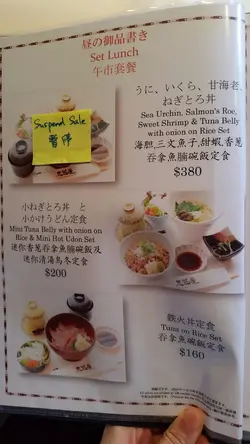 昼の御品書き
Set Lunch
午市套餐
Suspend Sale
暫停
うに、いくら、甘海老、
ねぎとろ丼
Sea Urchin, Salmon's Roe,
Sweet Shrimp & Tuna Belly
with onion on Rice Set
海胆,三文魚子,甜蝦,香葱
吞拿魚腩碗飯定食
$380
小ねぎとろ丼 と
小かけうどん定食
Mini Tuna Belly with onion on
Rice & Mini Hot Udon Set
迷你香葱吞拿魚腩碗飯及
迷你清湯烏冬定食
$200
鉄火丼定食
Tuna on Rice Set
吞拿魚碗飯定食
$160